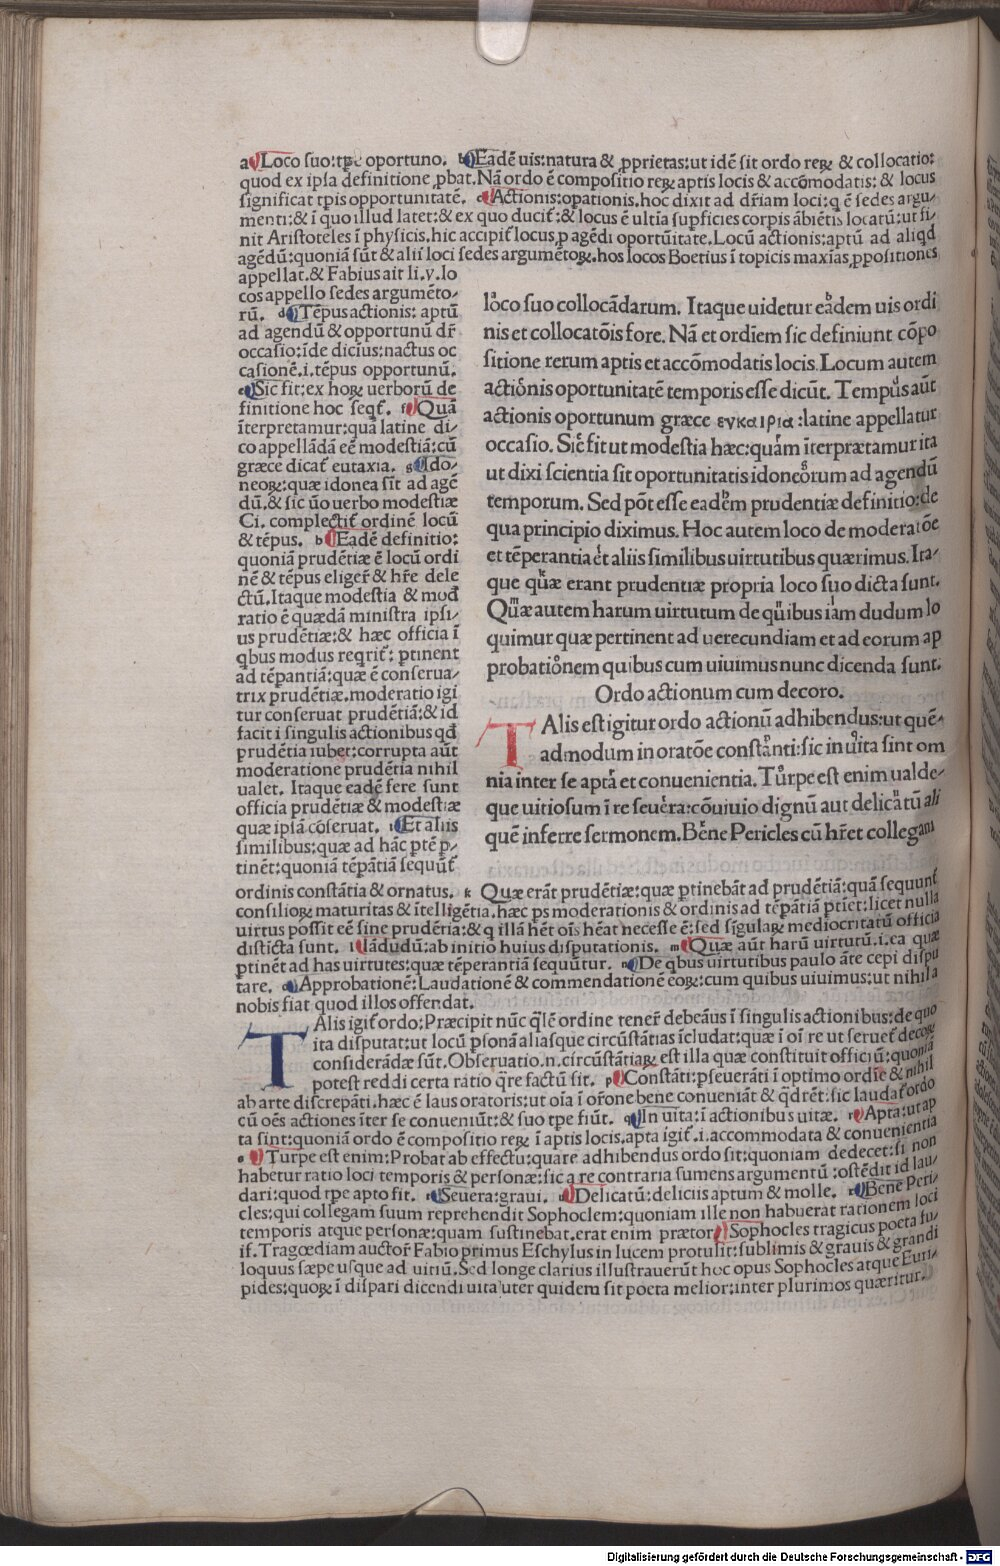 a Loco suo: tꝑe oportuno. b Eadē uis: natura & ꝓprietas: ut idē sit ordo reꝝ & collocatio:
quod ex ipsa definitione ꝓbat. Nā ordo ē compositio reꝝ aptis locis & accōmodatis: & locus
significat tꝑis opportunitatē. c Actionis: opationis. hoc dixit ad dr̄iam loci: q ē sedes argu-
menti: & ī quo illud latet: & ex quo ducit̄: & locus ē ultīa supficies corpis ābiētis locatū: ut fi-
nit Aristoteles ī physicis. hic accipit̄ locus, p agēdi oportūitate. Locū actionis: aptū ad aliqd
agēdū: quoniā sūt & alii loci sedes argumētoꝝ. hos locos Boetius ī topicis maxīas, ꝓpositiones
appellat. & Fabius ait li. v. lo
cos appello sedes argumēto-
rū. d Tēpus actionis: aptū
ad agendū & opportunū dr̄
occasio: īde dicius: nactus oc
casionē. i. tēpus opportunū.
e Sic fit: ex hoꝝ uerborū de
finitione hoc seqt̄. f Quā
īterpretamur: quā latine di-
co appellādā eē modestiā: cū
græce dicat̄ eutaxia. g Ido-
neoꝝ: quæ idonea sīt ad agē
dū. & sic ūo uerbo modestiæ
Ci. complectit̄ ordinē locū
& tēpus. h Eadē definitio:
quoniā prudētiæ ē locū ordi
nē & tēpus eliger̄ & hr̄e dele
ctū. Itaque modestia & mod̄
ratio ē quædā ministra ipsi-
us prudētiæ: & hæc officia ī
qbus modus reqrit̄: ptinent
ad tēpantiā: quæ ē conserua-
trix prudētiæ. moderatio igi
tur conseruat prudētiā: & id
facit ī singulis actionibus qd̄
prudētia iubet: corrupta aūt
moderatione prudētia nihil
ualet. Itaque eadē fere sunt
officia prudētiæ & modestiæ
quæ ipsā cōseruat. i Et aliis
similibus: quæ ad hāc ptē p-
tinēt: quoniā tēpātiā sequūt̄
ordinis constātia & ornatus. k Quæ erāt prudētiæ: quæ ptinebāt ad prudētiā: quā sequunt̄
consilioꝝ maturitas & ītelligētia. hæc ps moderationis & ordinis ad tēpātiā ptiet: licet nulla
uirtus possit eē sine prudētia: & q illā hēt oīs hēat necesse ē: sed sīgulaꝝ mediocritatū officia
disticta sunt. l Iādudū: ab initio huius disputationis. m Quæ aūt harū uirtutū. i. ea quæ
ptinēt ad has uirtutes: quæ tēperantiā sequūtur. n De qbus uirtutibus paulo āte cepi dispu
tare. o Approbationē: Laudationē & commendationē eoꝝ: cum quibus uiuimus: ut nihil a
nobis fiat quod illos offendat.
lòco suo collocādarum. Itaque uidetur eadem uis ordi
nis et collocatōis fore. Nā et ordīem sic definiunt cōpo
sitione rerum aptis et accōmodatis locis. Locum autem
actionis oportunitatē temporis esse dicūt. Tempus aūt
actionis oportunum græce ευκαιρια: latine appellatur
occasio. Sic fit ut modestia hæc: quam īterprætamur ita
ut dixi scientia sit oportunitatis idoneorum ad agendū
temporum. Sed pōt esse eadem prudentiæ definitio: de
qua principio diximus. Hoc autem loco de moderatōe
et tēperantia et aliis similibus uirtutibus quærimus. Ita-
que quæ erant prudentiæ propria loco suo dicta sunt.
Quæ autem harum uirtutum de quibus iam dudum lo
quimur quæ pertinent ad uerecundiam et ad eorum ap
probationem quibus cum uiuimus nunc dicenda sunt.
Ordo actionum cum decoro.
TAlis est igitur ordo actionū adhibendus: ut quē-
admodum in oratōe constanti: sic in uita sint om
nia inter se apta et conuenientia. Turpe est enim ualde-
que uitiosum ī re seuera: cōuiuio dignū aut delicatū ali
quē inferre sermonem. Bene Pericles cū hr̄et collegam
TAlis igit̄ ordo: Præcipit nūc qlē ordine tener̄ debeāus ī singulis actionibus: de quo
ita disputat: ut locū psonā aliasque circūstātias īcludat: quæ ī oī re ut seruet̄ decoꝝ
considerādæ sūt. Obseruatio. n. circūstātiaꝝ est illa quæ constituit officiū: quoniā
potest reddi certa ratio qre factū sit. p Constāti: pseuerāti ī optimo ordīe & nihil
ab arte discrepāti. hæc ē laus oratoris: ut oīa ī orōne bene conueniāt & qdrēt: sic laudat̄ ordo
cū oēs actiones īter se conueniūt: & suo tpe fiūt. q In uita: ī actionibus uitæ. r Apta: ut ap
ta sint: quoniā ordo ē compositio reꝝ ī aptis locis. apta igit̄. i. accommodata & conuenientia
s Turpe est enim: Probat ab effectu: quare adhibendus ordo sit: quoniam dedecet: si non
habetur ratio loci temporis & personæ: sic a re contraria sumens argumentū: ostēdit id lau-
dari: quod tpe apto fit. t Seuera: graui. u Delicatū: deliciis aptum & molle. x Bene Peri-
cles: qui collegam suum reprehendit Sophoclem: quoniam ille non habuerat rationem loci
temporis atque personæ: quam sustinebat. erat enim prætor Sophocles tragicus poeta fu-
it. Tragœdiam auctor̄ Fabio primus Eschylus in lucem protulit: sublimis & grauis & grandi
loquus sæpe usque ad uitiū. Sed longe clarius illustrauerūt hoc opus Sophocles atque Euri-
pides: quoꝝ ī dispari dicendi uita uter quidem sit poeta melior: inter plurimos quæritur.
Digitalisierung gefördert durch die Deutsche Forschungsgemeinschaft - DFG